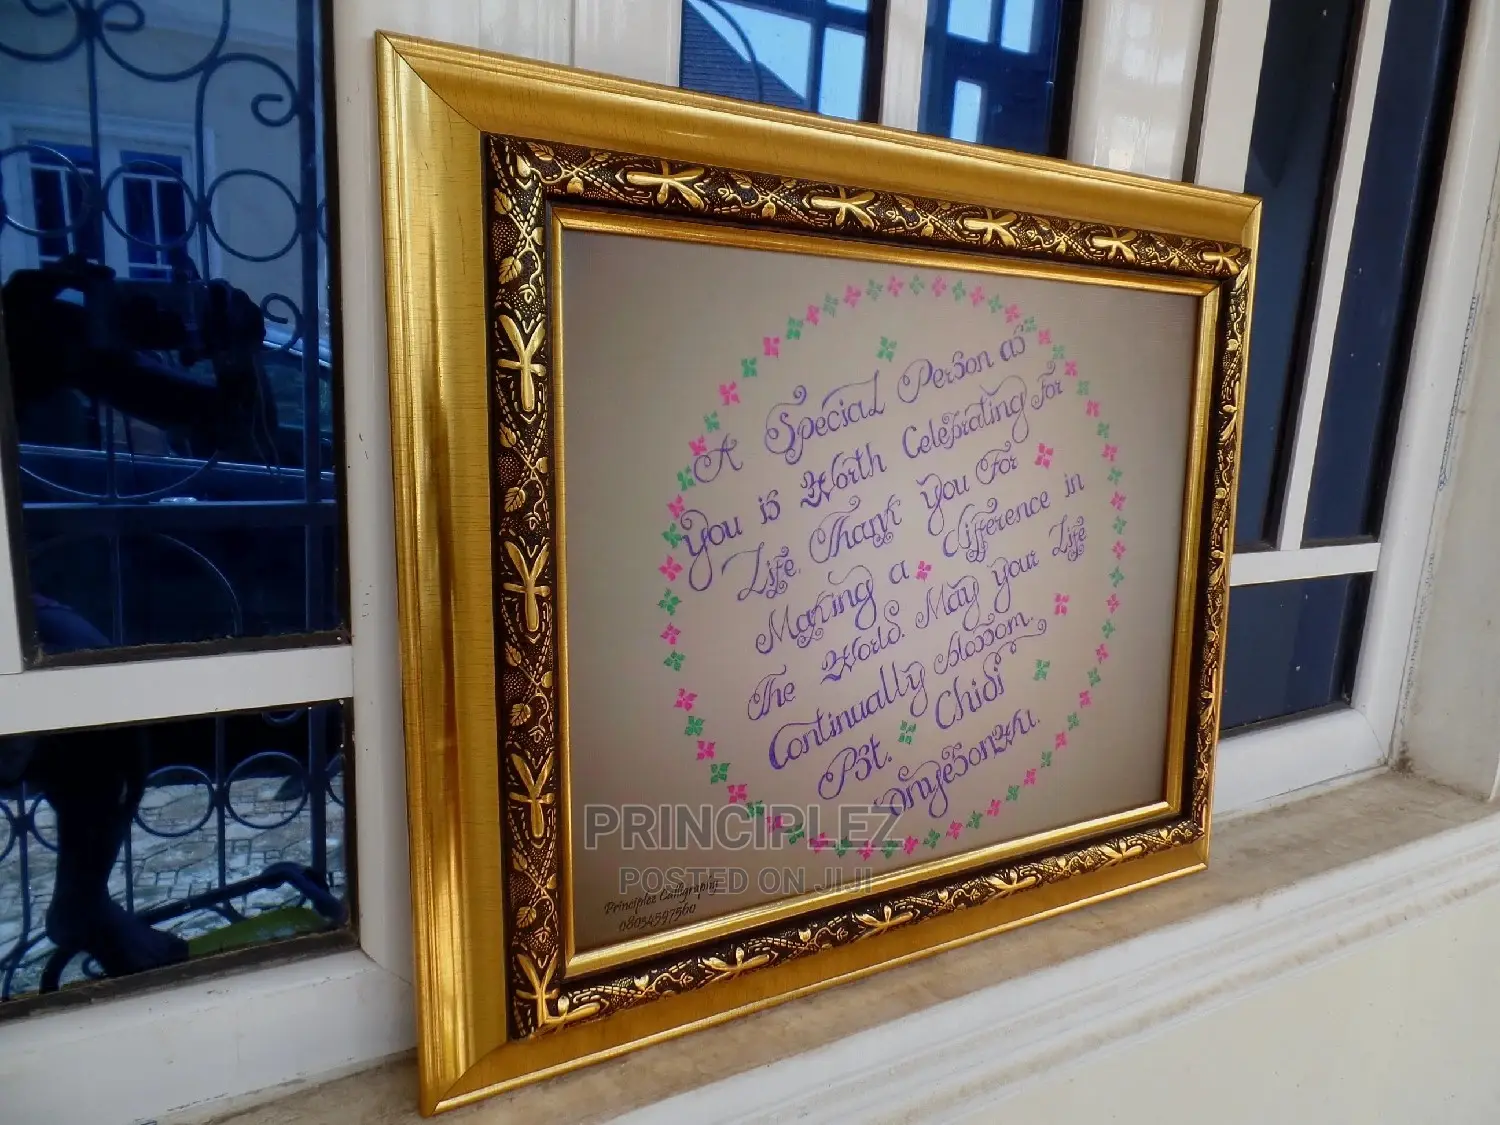 A Special Person as
You is Worth Celebrating For
Life. Thank you For
Making a difference in
The World. May your Life
Continually blossom.
Pst. Chidi
Onyesonwu.
Principlez Calligraphy
08034597560
PRINCIPLEZ
POSTED ON JIJI